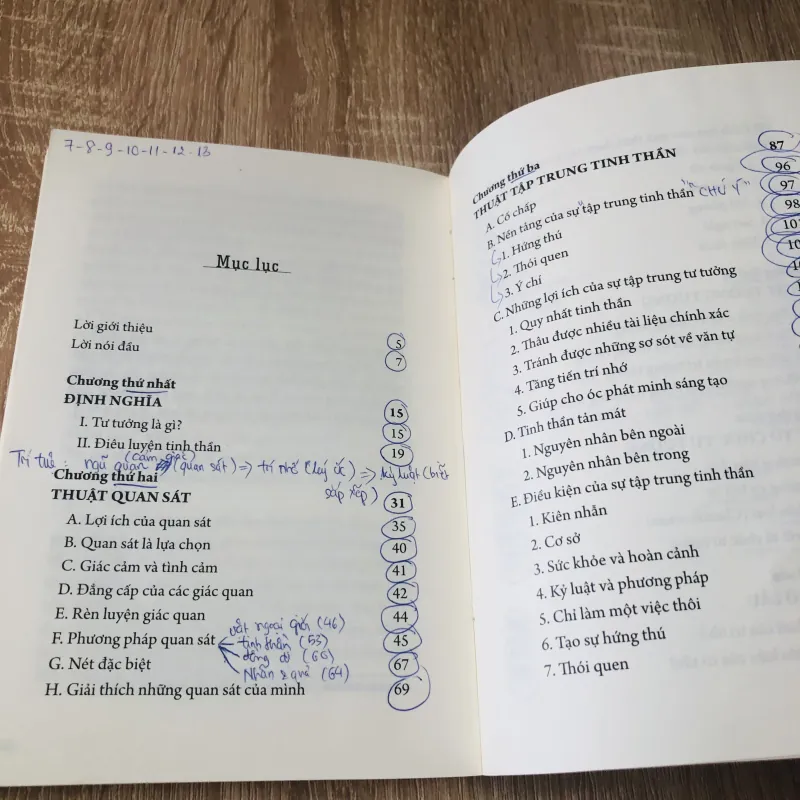 7-8-9-10-11-12-13
Mục lục
Lời giới thiệu 5
Lời nói đầu 7
Chương thứ nhất
ĐỊNH NGHĨA 15
I. Tư tưởng là gì? 15
II. Điều luyện tinh thần 19
(cảm giác)
Trí tuệ: ngũ quan (quan sát) => trí nhớ (ký ức) => kỷ luật (biết
sắp xếp)
Chương thứ hai
THUẬT QUAN SÁT 31
A. Lợi ích của quan sát 35
B. Quan sát là lựa chọn 40
C. Giác cảm và tình cảm 41
D. Đẳng cấp của các giác quan 42
E. Rèn luyện giác quan 44
vật ngoại giới (46)
F. Phương pháp quan sát tinh thần (53) 45
(60)
G. Nét đặc biệt 67
Nhân & quả (64)
H. Giải thích những quan sát của mình 69
Chương thứ ba
THUẬT TẬP TRUNG TINH THẦN 87
A. Cố chấp 96
B. Nền tảng của sự tập trung tinh thần "CHÚ Ý" 97
1. Hứng thú 98
2. Thói quen
3. Ý chí
C. Những lợi ích của sự tập trung tư tưởng
1. Quy nhất tinh thần
2. Thâu được nhiều tài liệu chính xác
3. Tránh được những sơ sót về văn tự
4. Tăng tiến trí nhớ
5. Giúp cho óc phát minh sáng tạo
D. Tinh thần tản mát
1. Nguyên nhân bên ngoài
2. Nguyên nhân bên trong
E. Điều kiện của sự tập trung tinh thần
1. Kiên nhẫn
2. Cơ sở
3. Sức khỏe và hoàn cảnh
4. Kỷ luật và phương pháp
5. Chỉ làm một việc thôi
6. Tạo sự hứng thú
7. Thói quen